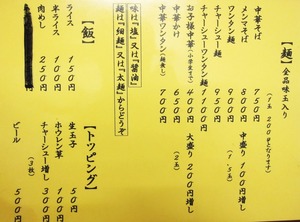 【麺】全品味玉入り
(1玉 200gとなります)
中華そば 750円
メンマそば 900円
ワンタン麺 800円
チャーシュー麺 950円
チャーシューワンタン麺 1100円
お子様中華(小学生まで) 650円
中華かけ 650円
中華ワンタン(麺無し) 400円
中盛り 100円増し
(1.5玉)
大盛り 200円増し
(2玉)
味は『塩』又は『醤油』
麺は『細麺』又は『太麺』からどうぞ
【飯】
ライス 150円
半ライス 100円
肉めし 250円
【トッピング】
生玉子 50円
ホウレン草 100円
チャーシュー増し 300円
(3枚)
ビール 500円